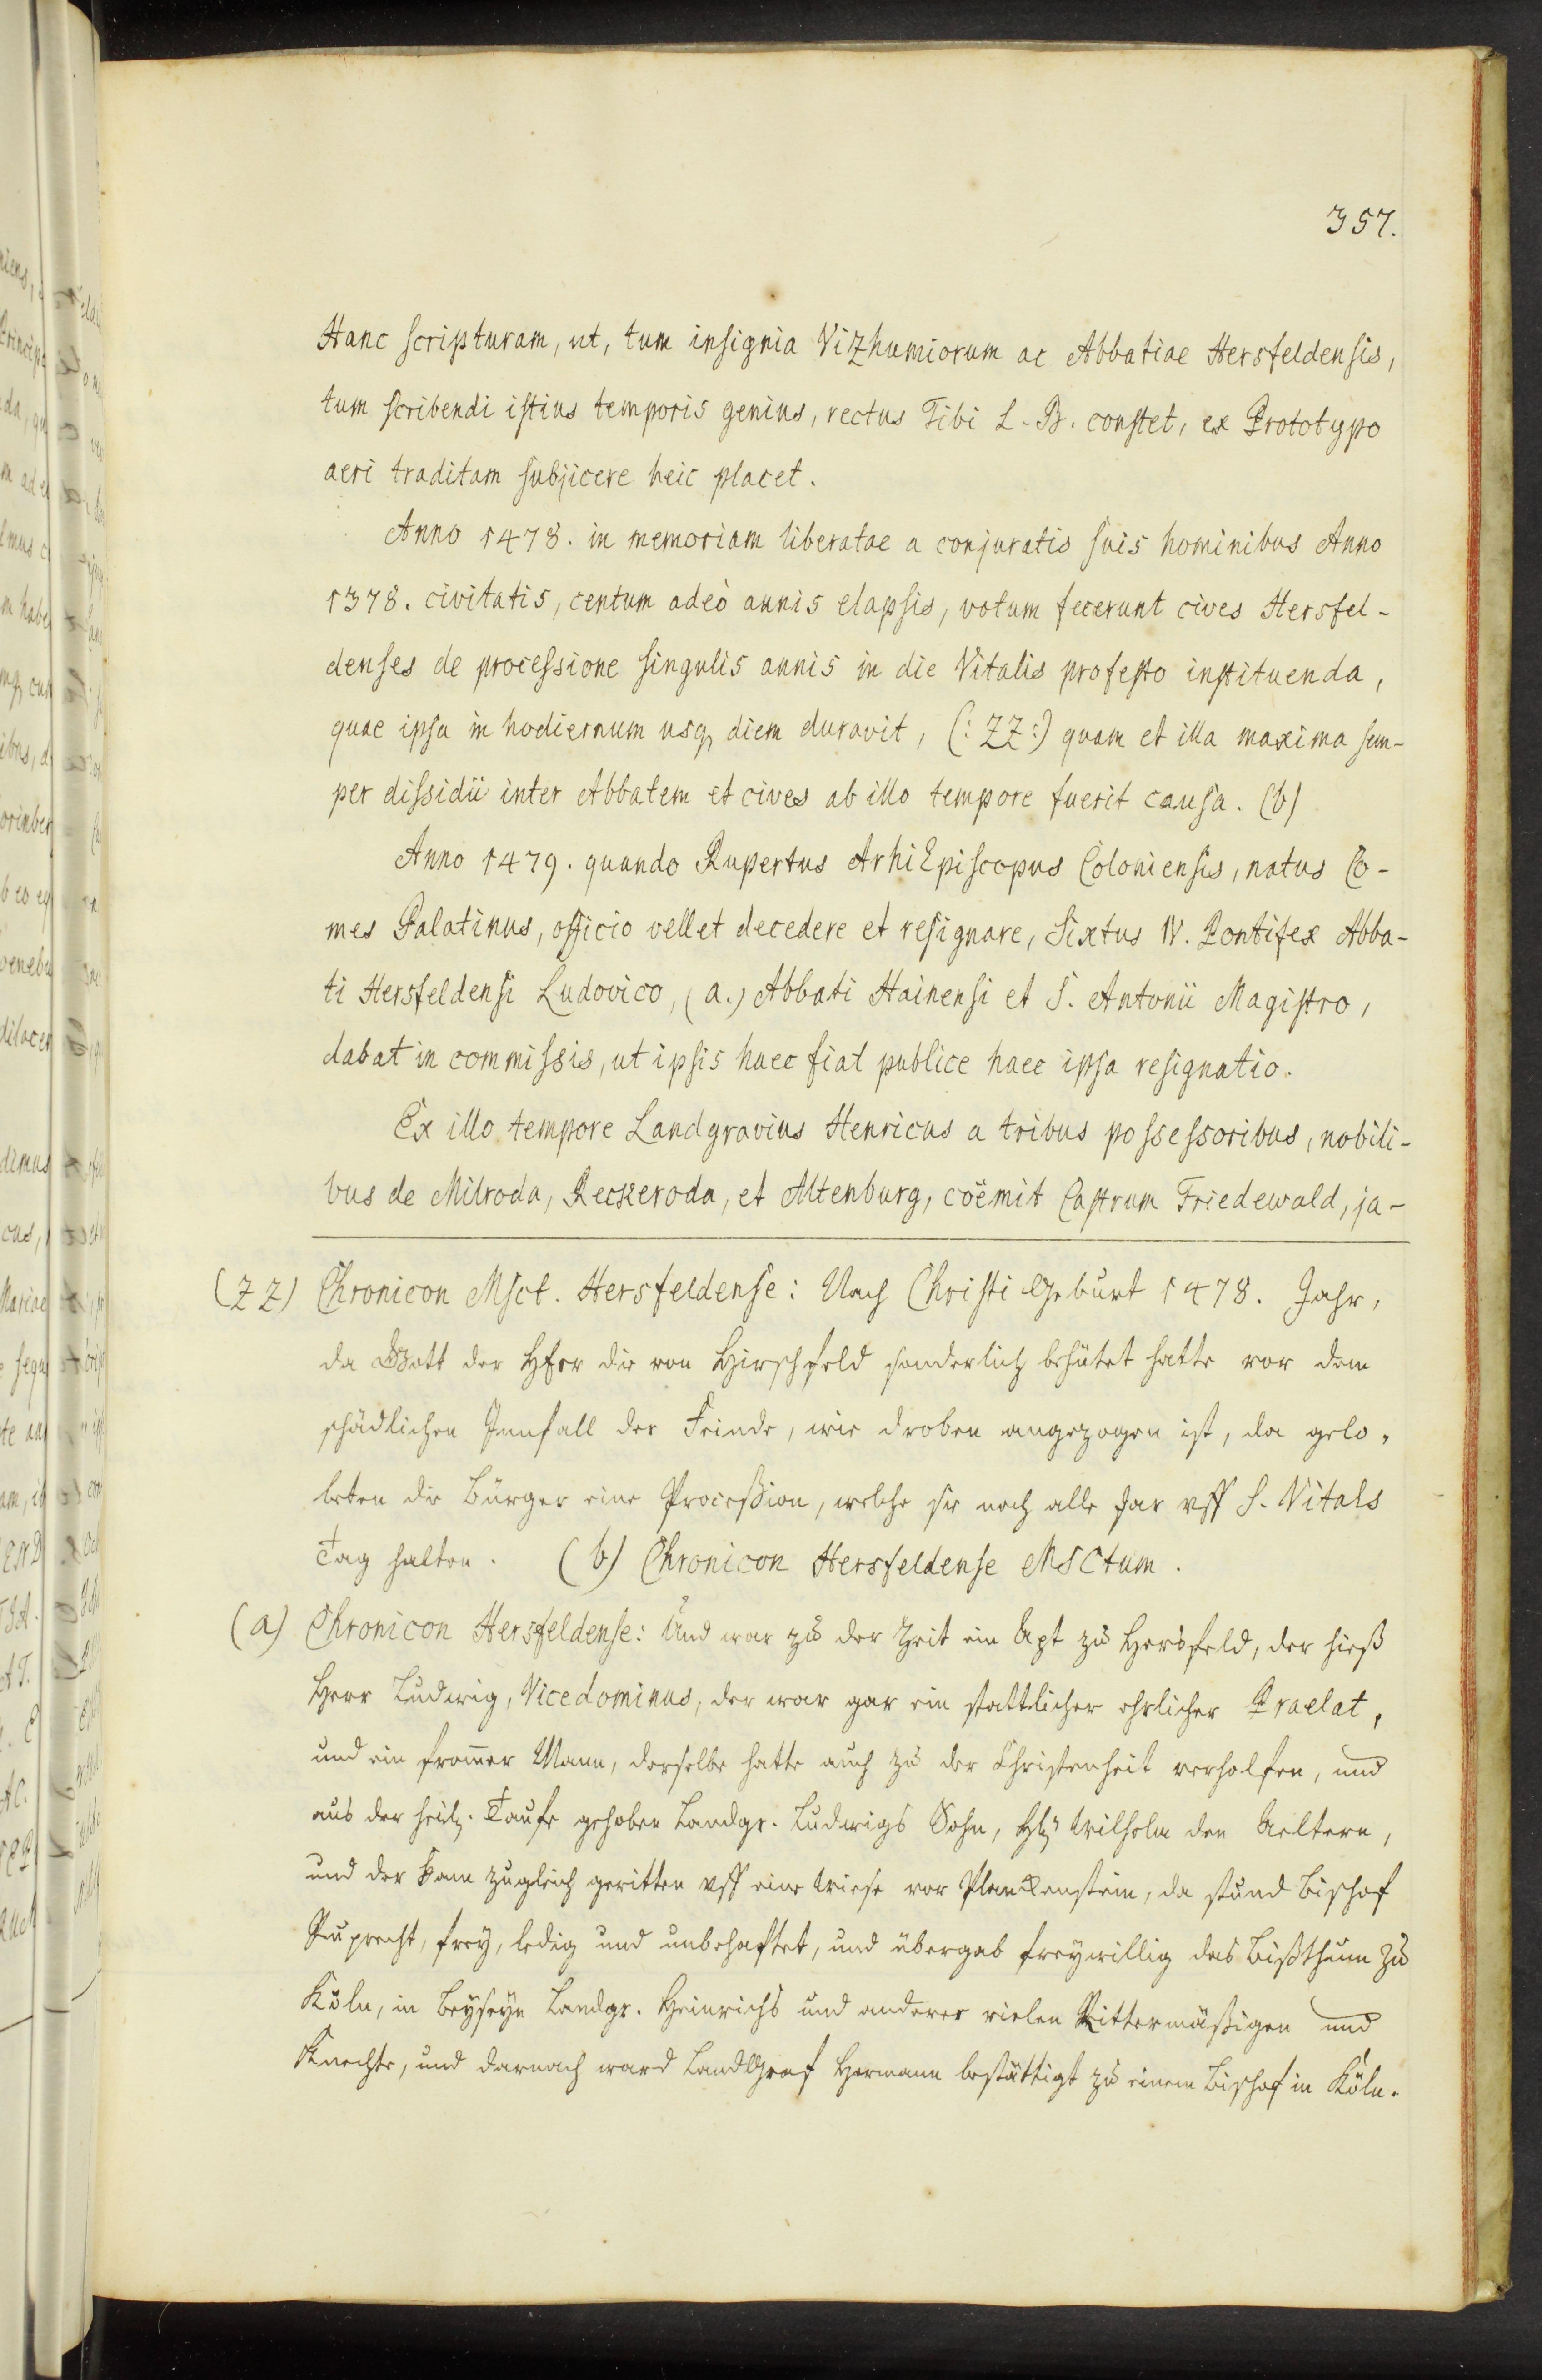 357.
Hanc scripturam, ut, tum insignia Vizhumiorum ac Abbatiae Hersfeldensis,
tum scribendi istius temporis genius, rectus Tibi L. B. constet, ex Prototypo
aeri traditam subjicere heic placet.
Anno 1478. in memoriam liberatae a conjuratis suis hominibus Anno
1378. civitatis, centum adeò annis elapsis, votum fecerunt cives Hersfel-
denses de processione singulis annis in die Vitalis profesto instituenda,
quae ipsa in hodiernum usq, diem duravit, (: ZZ:) quam et illa maxima sem-
per dissidii inter Abbatem et cives ab illo tempore fuerit causa. (b)
Anno 1479. quando Rupertus ArhiEpiscopus Coloniensis, natus Co-
mes Palatinus, officio vellet decedere et resignare, Sixtus IV. Pontifex Abba-
ti Hersfeldensi Ludovico, (a.) Abbati Hainensi et S. Antonii Magistro,
dabat in commissis, ut ipsis haec fiat publice haec ipsa resignatio.
Ex illo tempore Landgravius Henricus a tribus possessoribus, nobili-
bus de Milroda, Reckeroda, et Altenburg, coëmit Castrum Friedewald, ja-
(ZZ) Chronicon Msct. Hersfeldense: Nach Christi Geburt 1478. Jahr,
da Gott der Herr die von Hirschfeld sonderlich behütet hatte vor dem
schädlichen Innfall der Feinde, wie droben angezogen ist, da gelo-
beten die Bürger eine Procession, welche sie noch alle Jar vff S. Vitals
Tag halten. (b) Chronicon Hersfeldense MSCtum.
(a) Chronicon Hersfeldense: Und war zu der Zeit ein Apt zu Hersfeld, der hieß
Herr Ludwig, Vicedominus, der war gar ein stattlicher ehrlicher Praelat,
und ein from̄er Mann, derselbe hatte auch zu der Christenheit verholfen, und
aus der heil. Taufe gehoben Landgr. Ludwigs Sohn, Wilhelm den Aeltern,
und der kam zugleich geritten vff eine Wiese vor Planckenstein, da stund Bischof
Ruprecht, frey, ledig und unbehaftet, und übergab freywillig das Bißthum zu
Köln, in Beyseyn Landgr. Heinrichs und anderer vielen Rittermäßigen und
Knechte, und darnach ward LandGraf Hermann bestättigt zu einem Bischof in Köln.